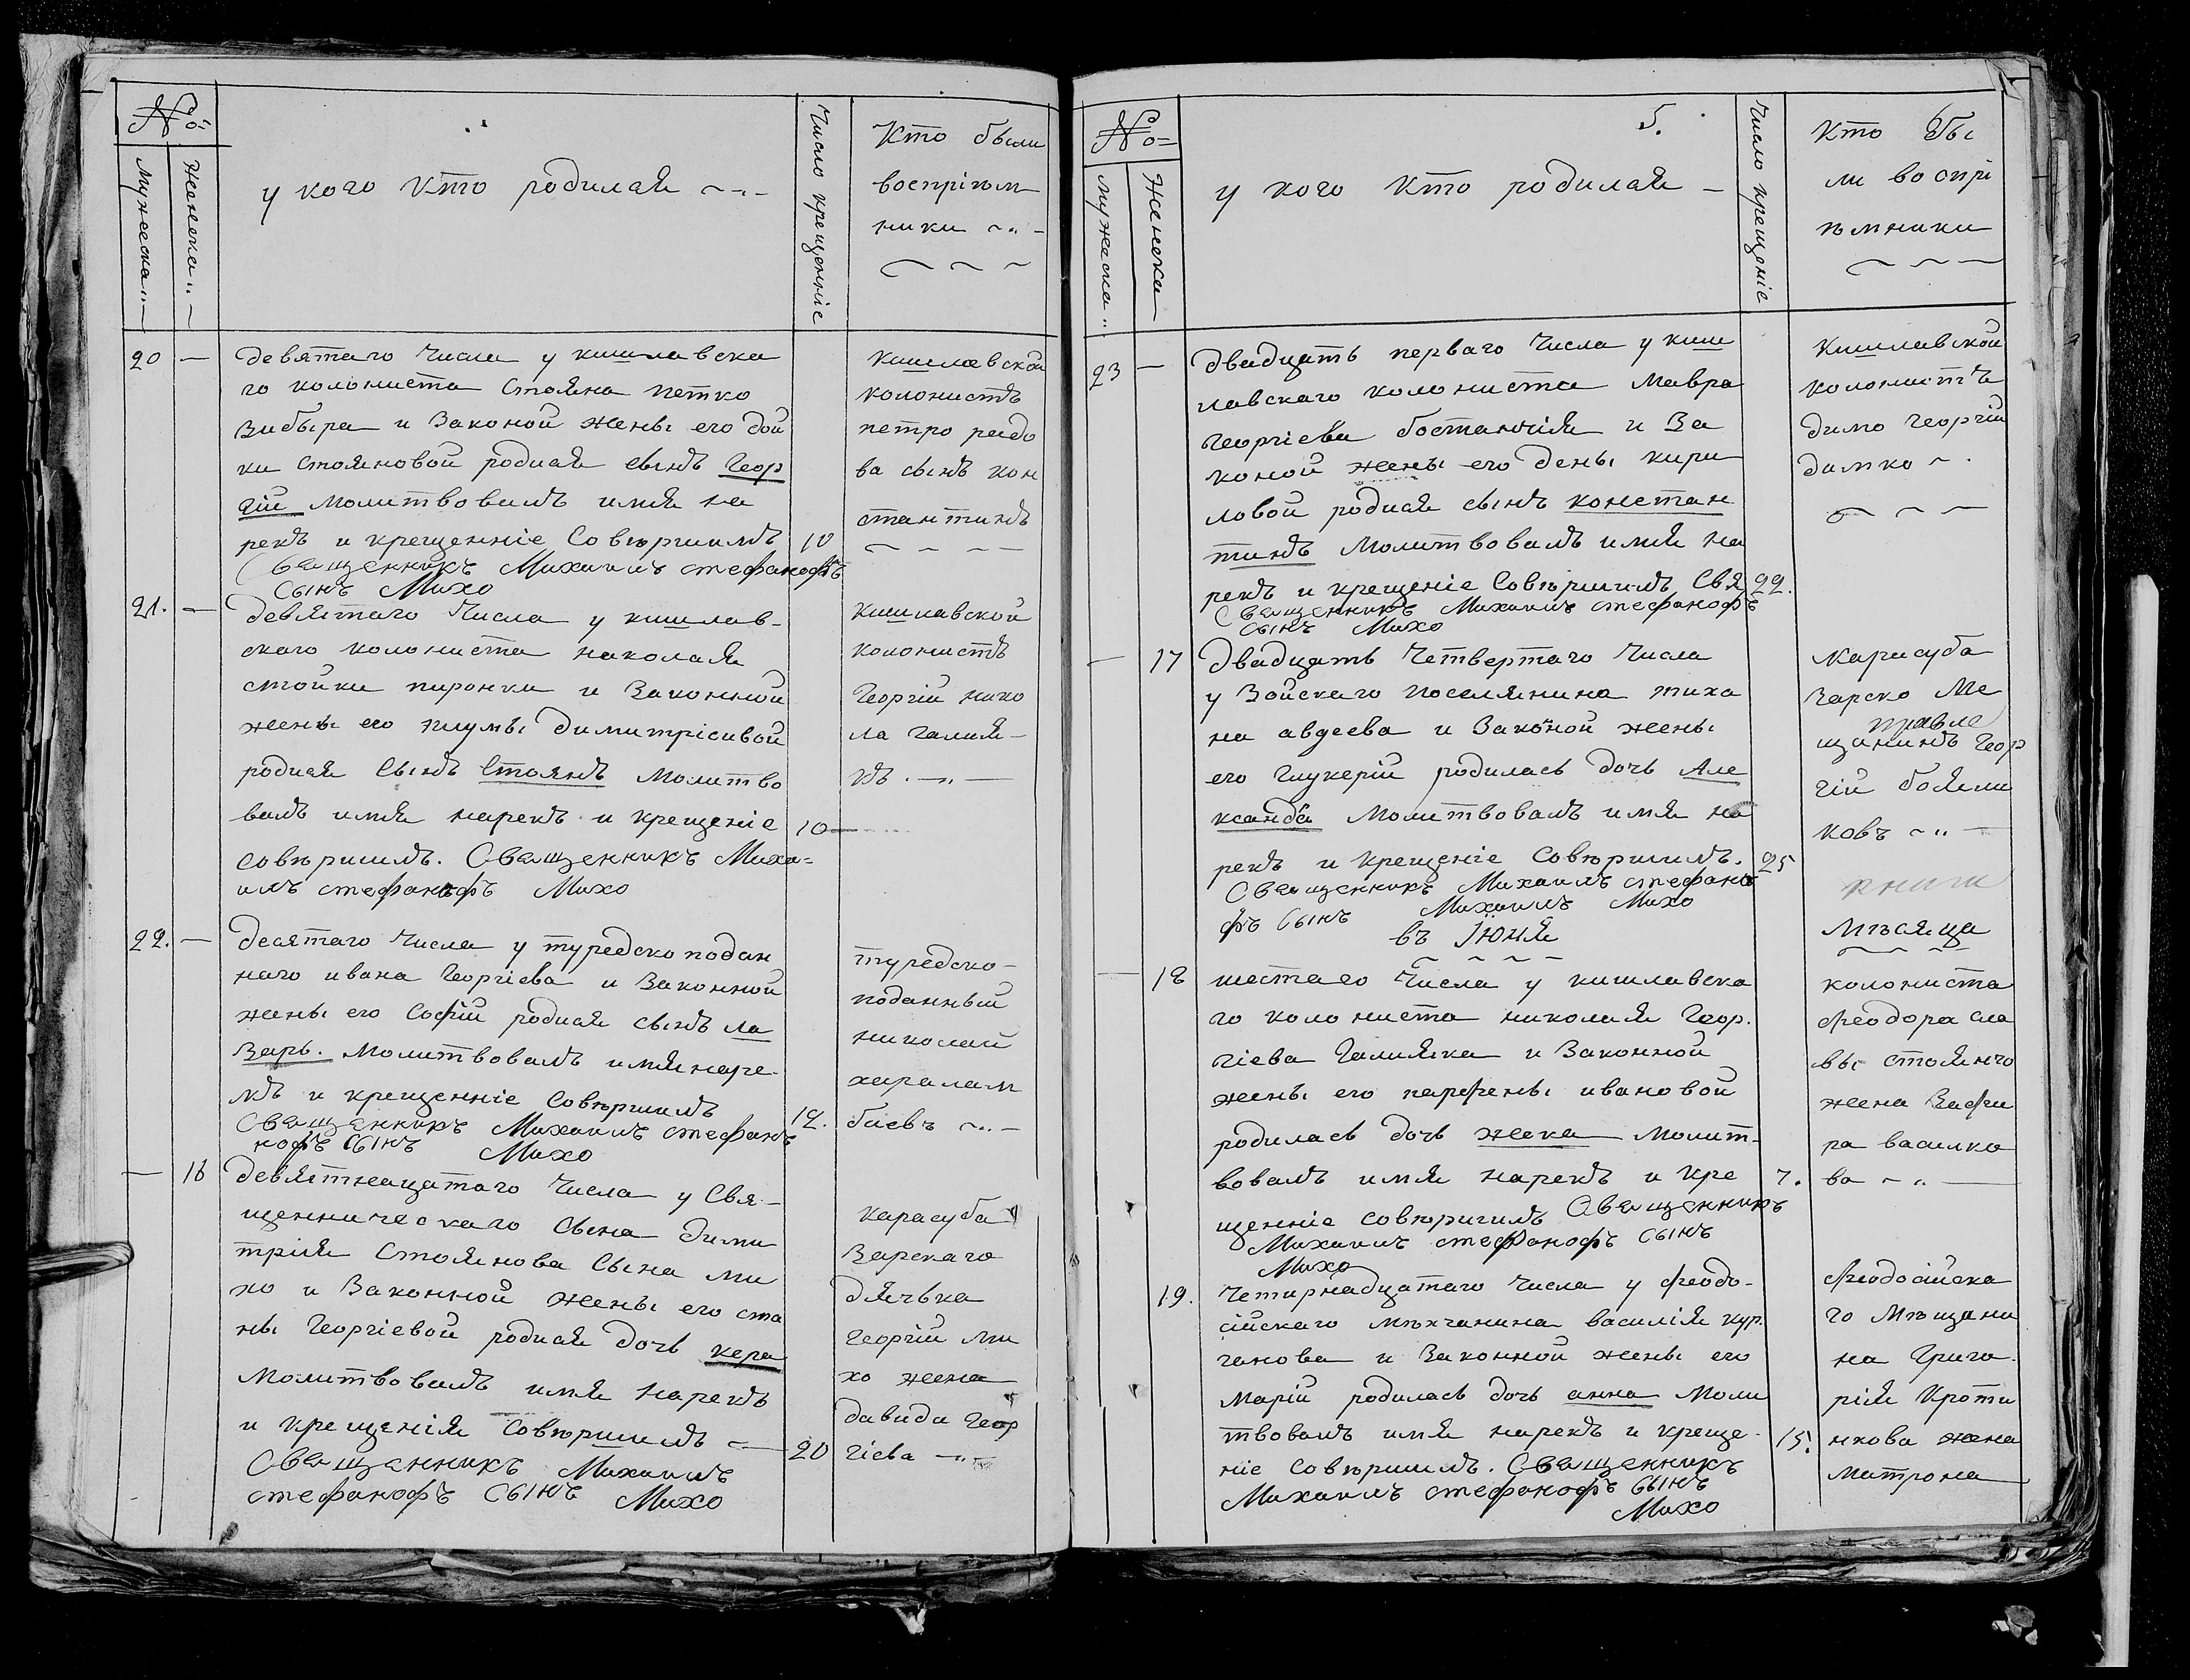 №
Мужеска
Женска
у кого кто родился
Число крещенніе
Кто были
воспріѣм
ники
20 — девятаго Числа у кишлавска
го колониста Стояна петко
Зибыра и Законой жены его дой
ки стояновой родился сынъ Геор
гій молитвовалъ имя на
рекъ и крещенніе Совѣршилъ 10
Священникъ Михаилъ стефанофъ
Сынъ Михо
Кишлавской
колонистъ
петро радо
ва сынъ кон
стантинъ
21. — девятаго Числа у кишлав-
скаго колониста николая
стойки пиронки и Законной
жены его шумы димитріивой
родился Сынъ Стоянъ Молитво
валъ имя нарекъ и крещеніе 10
совѣршилъ. Священникъ Миха=
илъ стефанофъ Михо
кишлавской
колонистъ
Георгій нико
ла Галия-
къ
22. — десятаго Числа у турецко подан
наго ивана Георгіева и Законной
жены его Софій родился сынъ ла
Зарь. Молитвовалъ имя наре-
къ и крещенніе Совѣршилъ 12.
Священникъ Михаилъ стефанъ
нофъ Сынъ Михо
турецко-
поданный
николай
харалам
біевъ
— 16 девятнацатаго Числа у Свя-
щенническаго Сына дими
трія Стоянова Сына ми
хо и Законной жены его ста
ны Георгіевой родися дочь кера
Молитвовалъ имя нарекъ
и крещенія Совѣршилъ 20
Священникъ Михаилъ
стефанофъ Сынъ Михо
карасуба
Зарскаго
дячька
Георгій ми
хо жена
давида Геор
гіева
№
Мужеска
Женска
5.
у кого кто родился
Число крещеніе
Кто бы
ли воспрі
ѣмники
23 — двадцать перваго Числа у киш
лавскаго колониста Мавра
Георгіева бостанчія и За
коной жены его дены кири
ловой родися сынъ констан
тинъ Молитвовалъ имя на
рекъ и крещеніе Совѣршилъ Свя 22.
Священникъ Михаилъ стефанофъ
сынъ Михо
Кишлавской
колонистъ
димо Георгій
димко
— 17 двадцать Четвертаго Числа
у Зойскаго поселянина тиха
на авдеева и Законой жены
его Глукерій родилась дочь Але
ксанда Молитвовалъ имя на
рекъ и крещеніе Совѣршилъ. 25
Священникъ Михаилъ стефано
фъ Сынъ Михаилъ Михо
Карасуба
Зарско Ме
щанинъ Геор
гій бояли
ковъ
въ Июня
Мѣсяца
— 18 шестаго Числа у кишлавска
го колониста николая Геор.
гіева Галияка и Законной
жены его парфены ивановой
родилась дочь жека Молит-
вовалъ имя нарекъ и кре 7.
щенніе совѣршилъ Священникъ
Михаилъ стефанофъ сынъ
Михо
колониста
феодора сла
вы стоянчо
жена Зафи
ра василко
ва
19. Четирнадцатаго Числа у феодо-
сійскаго мѣхчанина василія кур.
ганова и Законной жены его
Марій родилась дочь анна Моли
твовалъ имя нарекъ и креще- 15.
ніе Совѣршилъ. Священникъ
Михаилъ стефанофъ сынъ
Михо
феодосийска
го Мѣщани
на Григо-
рія Кроти
нкова жена
Матрона